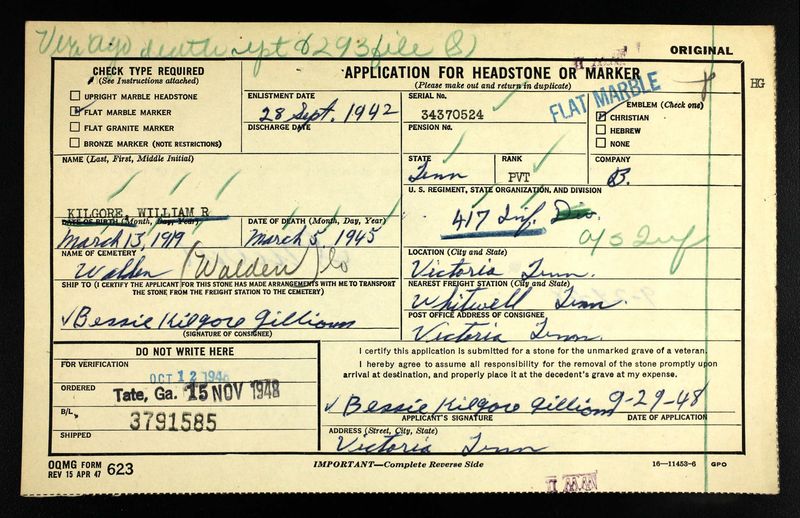 death rpt 293 file
ORIGINAL
CHECK TYPE REQUIRED
(See Instructions attached)
UPRIGHT MARBLE HEADSTONE
FLAT MARBLE MARKER
FLAT GRANITE MARKER
BRONZE MARKER (NOTE RESTRICTIONS)
APPLICATION FOR HEADSTONE OR MARKER
(Please make out and return in duplicate)
HG
ENLISTMENT DATE
28 Sept. 1942
DISCHARGE DATE
SERIAL No.
34370524
PENSION No.
FLAT MARBLE
EMBLEM (Check one)
CHRISTIAN
HEBREW
NONE
NAME (Last, First, Middle Initial)
KILGORE, WILLIAM R
STATE
Tenn
RANK
PVT
COMPANY
B.
U. S. REGIMENT, STATE ORGANIZATION, AND DIVISION
417 Inf. Div.
a/s Inf
DATE OF BIRTH (Month, Day, Year)
March 13, 1919
DATE OF DEATH (Month, Day, Year)
March 5, 1945
NAME OF CEMETERY
Walden (Walden) Co
LOCATION (City and State)
Victoria Tenn.
SHIP TO (I CERTIFY THE APPLICANT FOR THIS STONE HAS MADE ARRANGEMENTS WITH ME TO TRANSPORT
THE STONE FROM THE FREIGHT STATION TO THE CEMETERY)
Bessie Kilgore Gilliam
(SIGNATURE OF CONSIGNEE)
NEAREST FREIGHT STATION (City and State)
Whitwell Tenn.
POST OFFICE ADDRESS OF CONSIGNEE
Victoria Tenn.
DO NOT WRITE HERE
FOR VERIFICATION
OCT 12 1948
ORDERED
Tate, Ga. 15 NOV 1948
B/L
3791585
SHIPPED
I certify this application is submitted for a stone for the unmarked grave of a veteran.
I hereby agree to assume all responsibility for the removal of the stone promptly upon
arrival at destination, and properly place it at the decedent's grave at my expense.
Bessie Kilgore Gilliam 9-29-48
APPLICANT'S SIGNATURE
DATE OF APPLICATION
ADDRESS (Street, City, State)
Victoria Tenn
OQMG FORM
REV 15 APR 47
623
IMPORTANT—Complete Reverse Side
16—11453-6 GPO